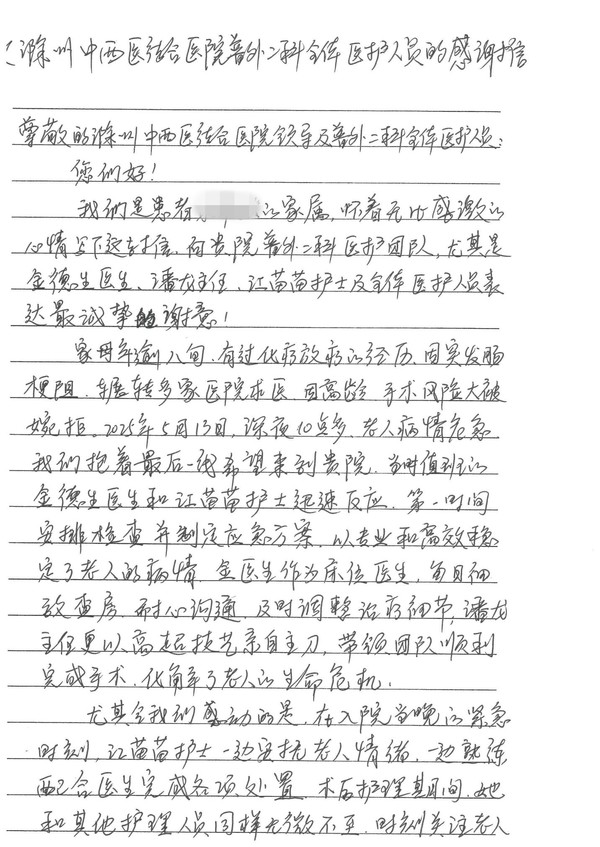 滁州中西医结合医院普外二科全体医护人员的感谢信
尊敬的滁州中西医结合医院领导及普外二科全体医护人员:
您们好!
我们是患者 的家属,怀着无比感激的
心情写下这封信,向贵院普外二科医护团队,尤其是
金德生医生、潘龙主任、江苗苗护士及全体医护人员表
达最诚挚的谢意!
家母年逾八旬,有过化疗放疗的经历,因突发肠
梗阻,辗转多家医院求医,因高龄、手术风险大被
婉拒。2025年5月13日,深夜10点多,老人病情危急,
我们抱着最后一线希望来到贵院,当时值班的
金德生医生和江苗苗护士迅速反应,第一时间
安排检查并制定应急方案,以专业和高效稳
定了老人的病情,金医生作为床位医生,每日细
致查房,耐心沟通,及时调整治疗细节,潘龙
主任更以高超技艺亲自主刀,带领团队顺利
完成手术,化解了老人的生命危机.
尤其令我们感动的是,在入院当晚的紧急
时刻,江苗苗护士一边安抚老人情绪,一边熟练
配合医生完成各项处置,术后护理期间,她
和其他护理人员同样无微不至,时刻关注老人